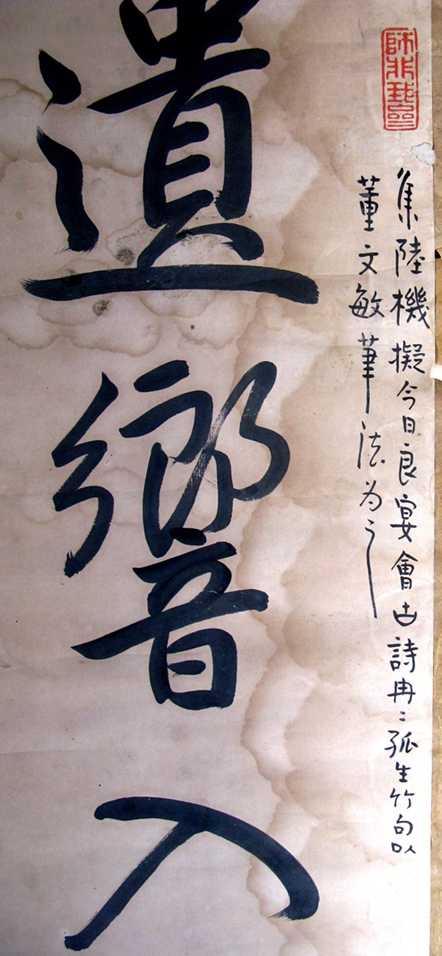 集陸機擬今日良宴會古詩冉〻孤生竹句以
董文敏筆法为之
遺響入